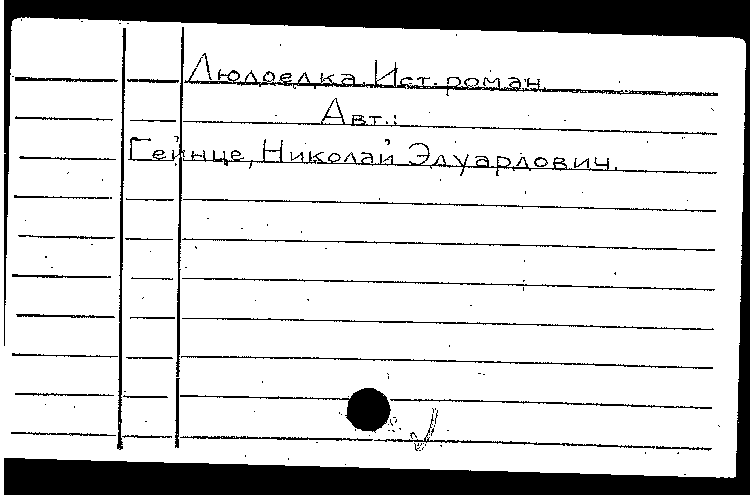 Людоедка. Ист. роман.
Авт.:
Гейнце, Николай Эдуардович.